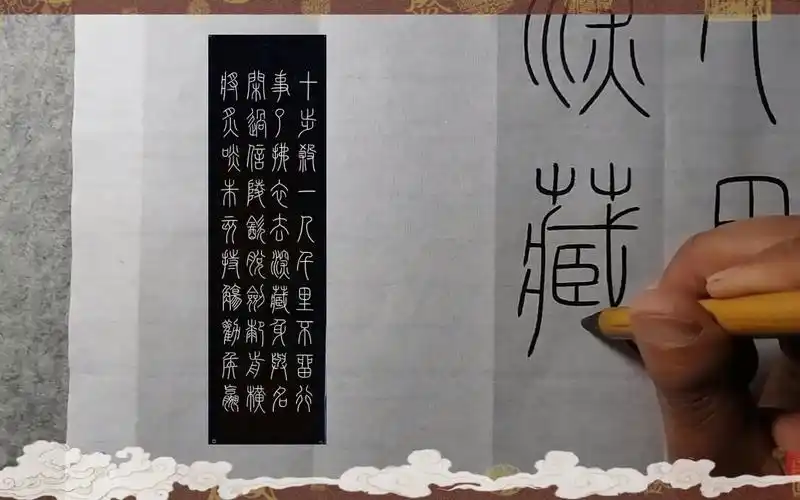 十步殺一人千里不留行
事了拂衣去深藏身與名
閑過信陵飲脫劍膝前橫
將炙啖朱亥持觴勸侯嬴
深藏